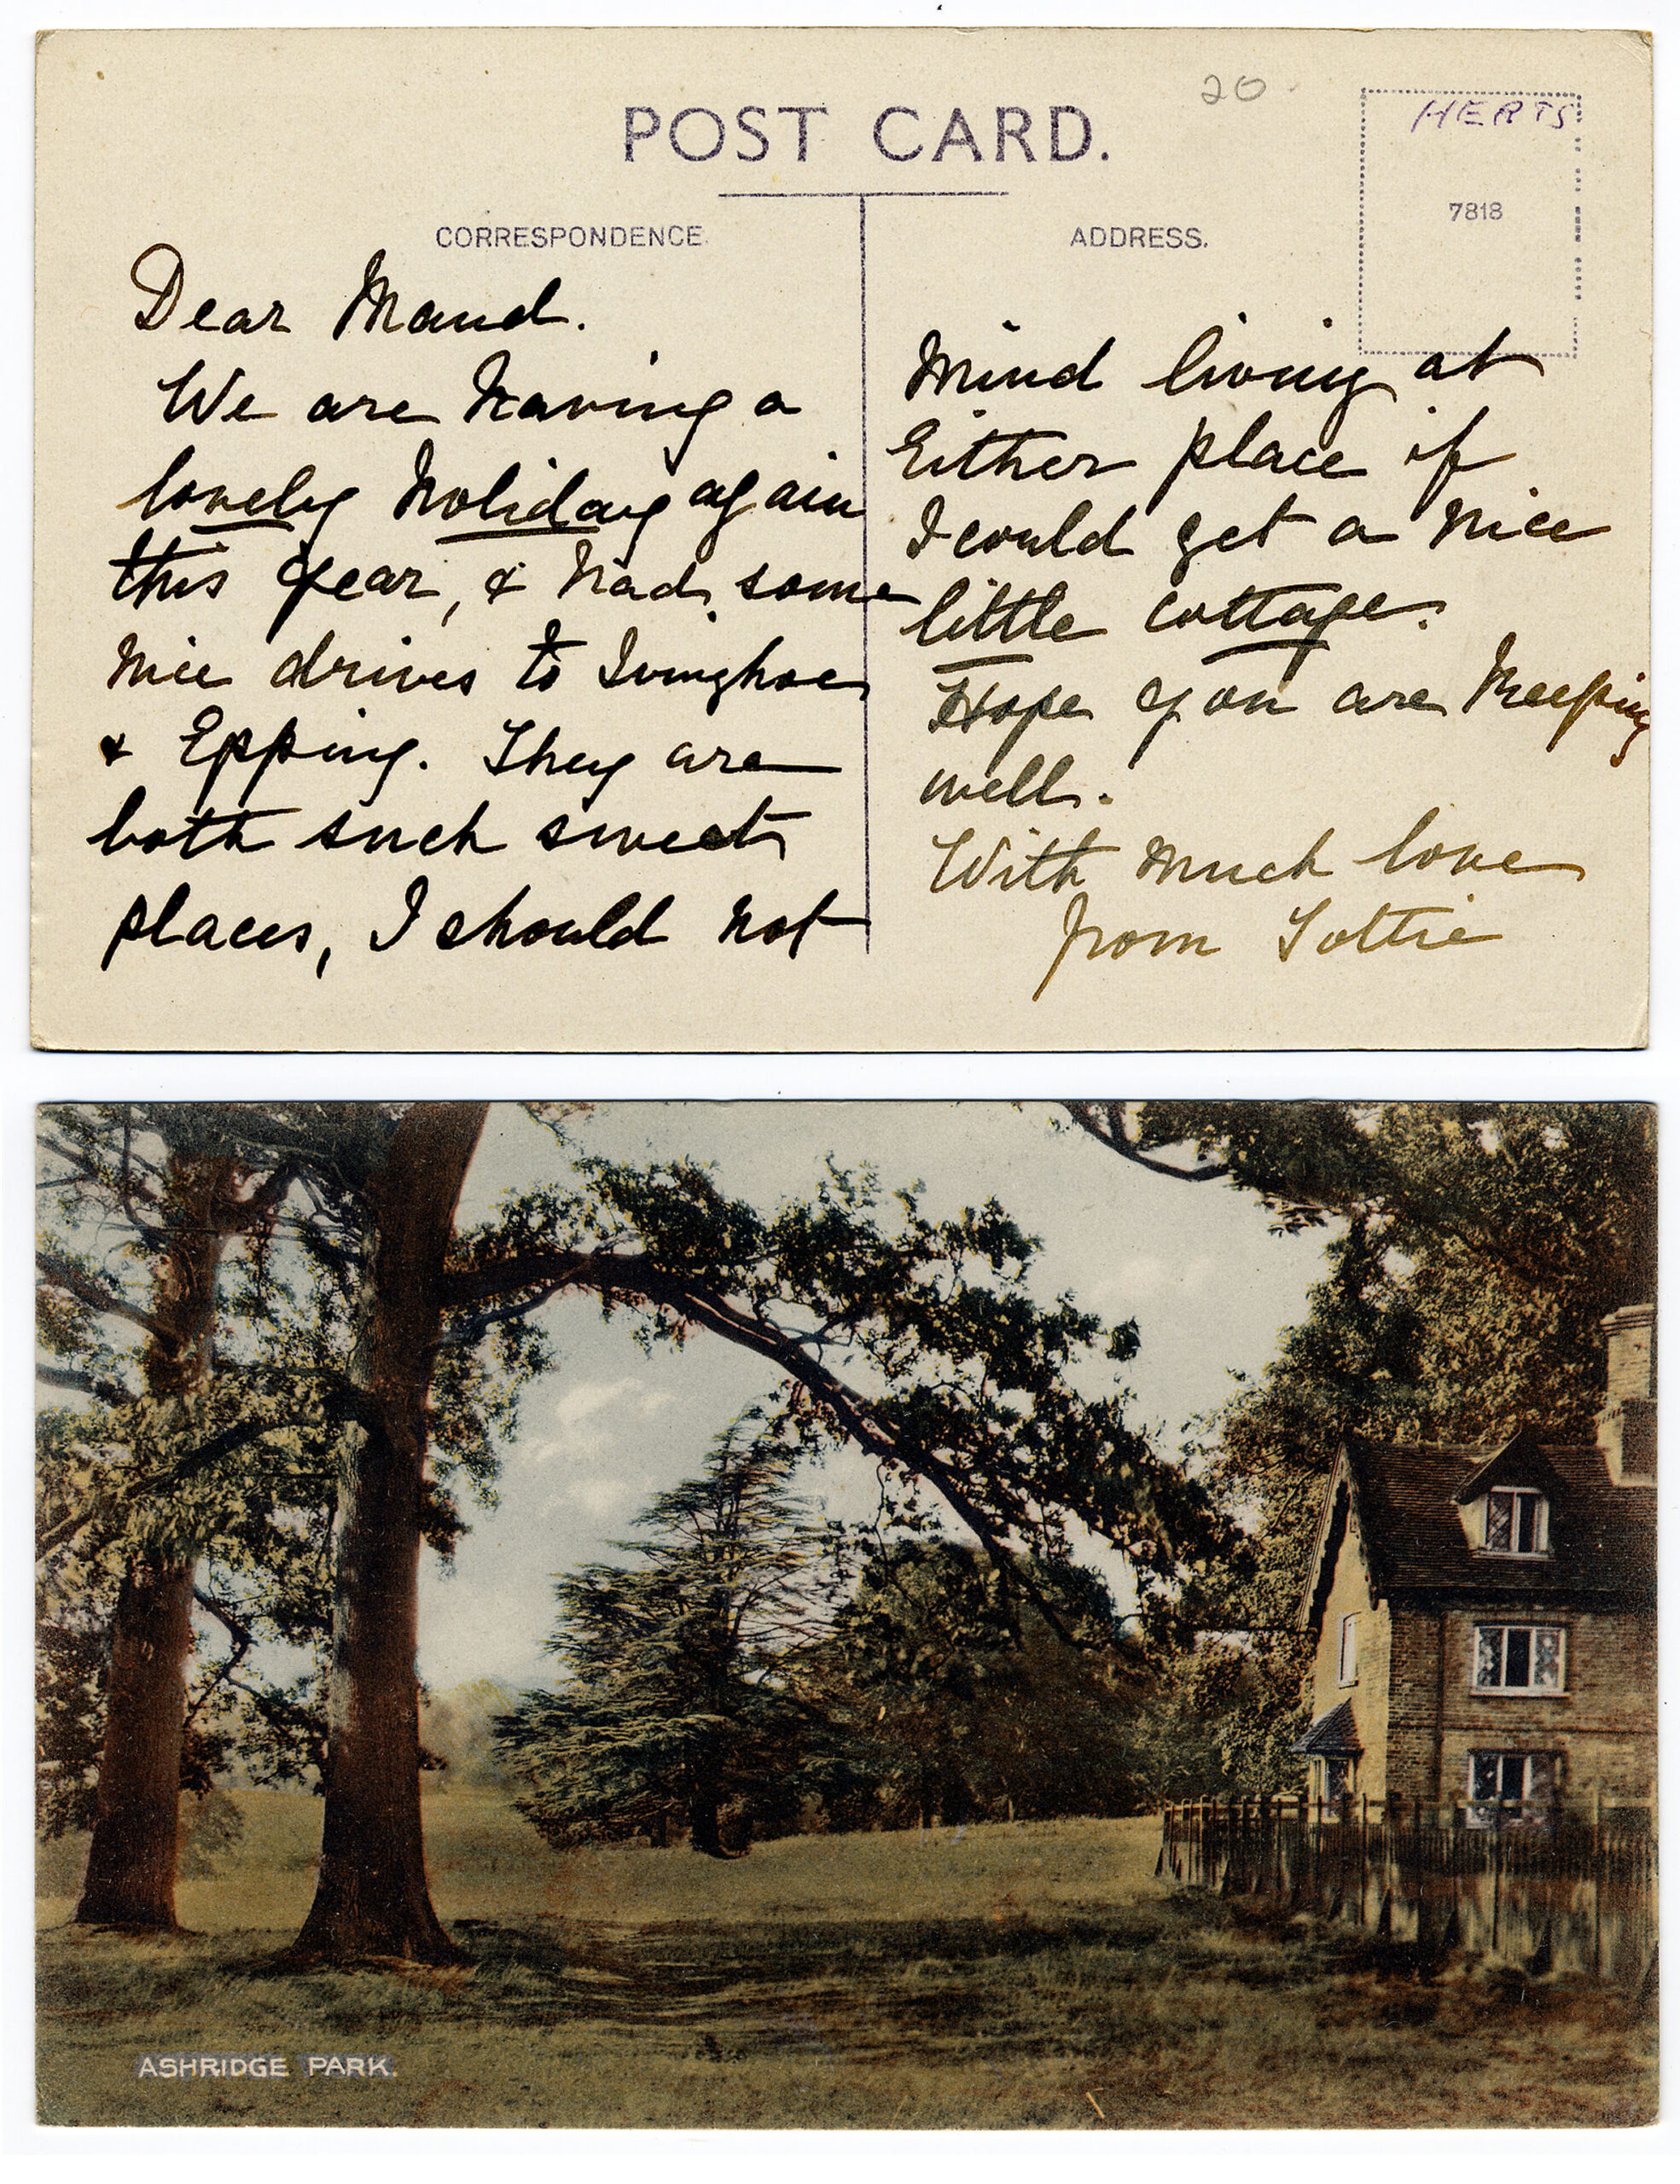 20
POST CARD.
HERTS
7818
CORRESPONDENCE.
ADDRESS.
Dear Maud.
We are having a
lovely holiday again
this year, & had some
nice drives to Ivinghoe
& Epping. They are
both such sweet
places, I should not
mind living at
Either place if
I could get a nice
little cottage.
Hope you are keeping
well.
With much love
from Tottie
ASHRIDGE PARK.